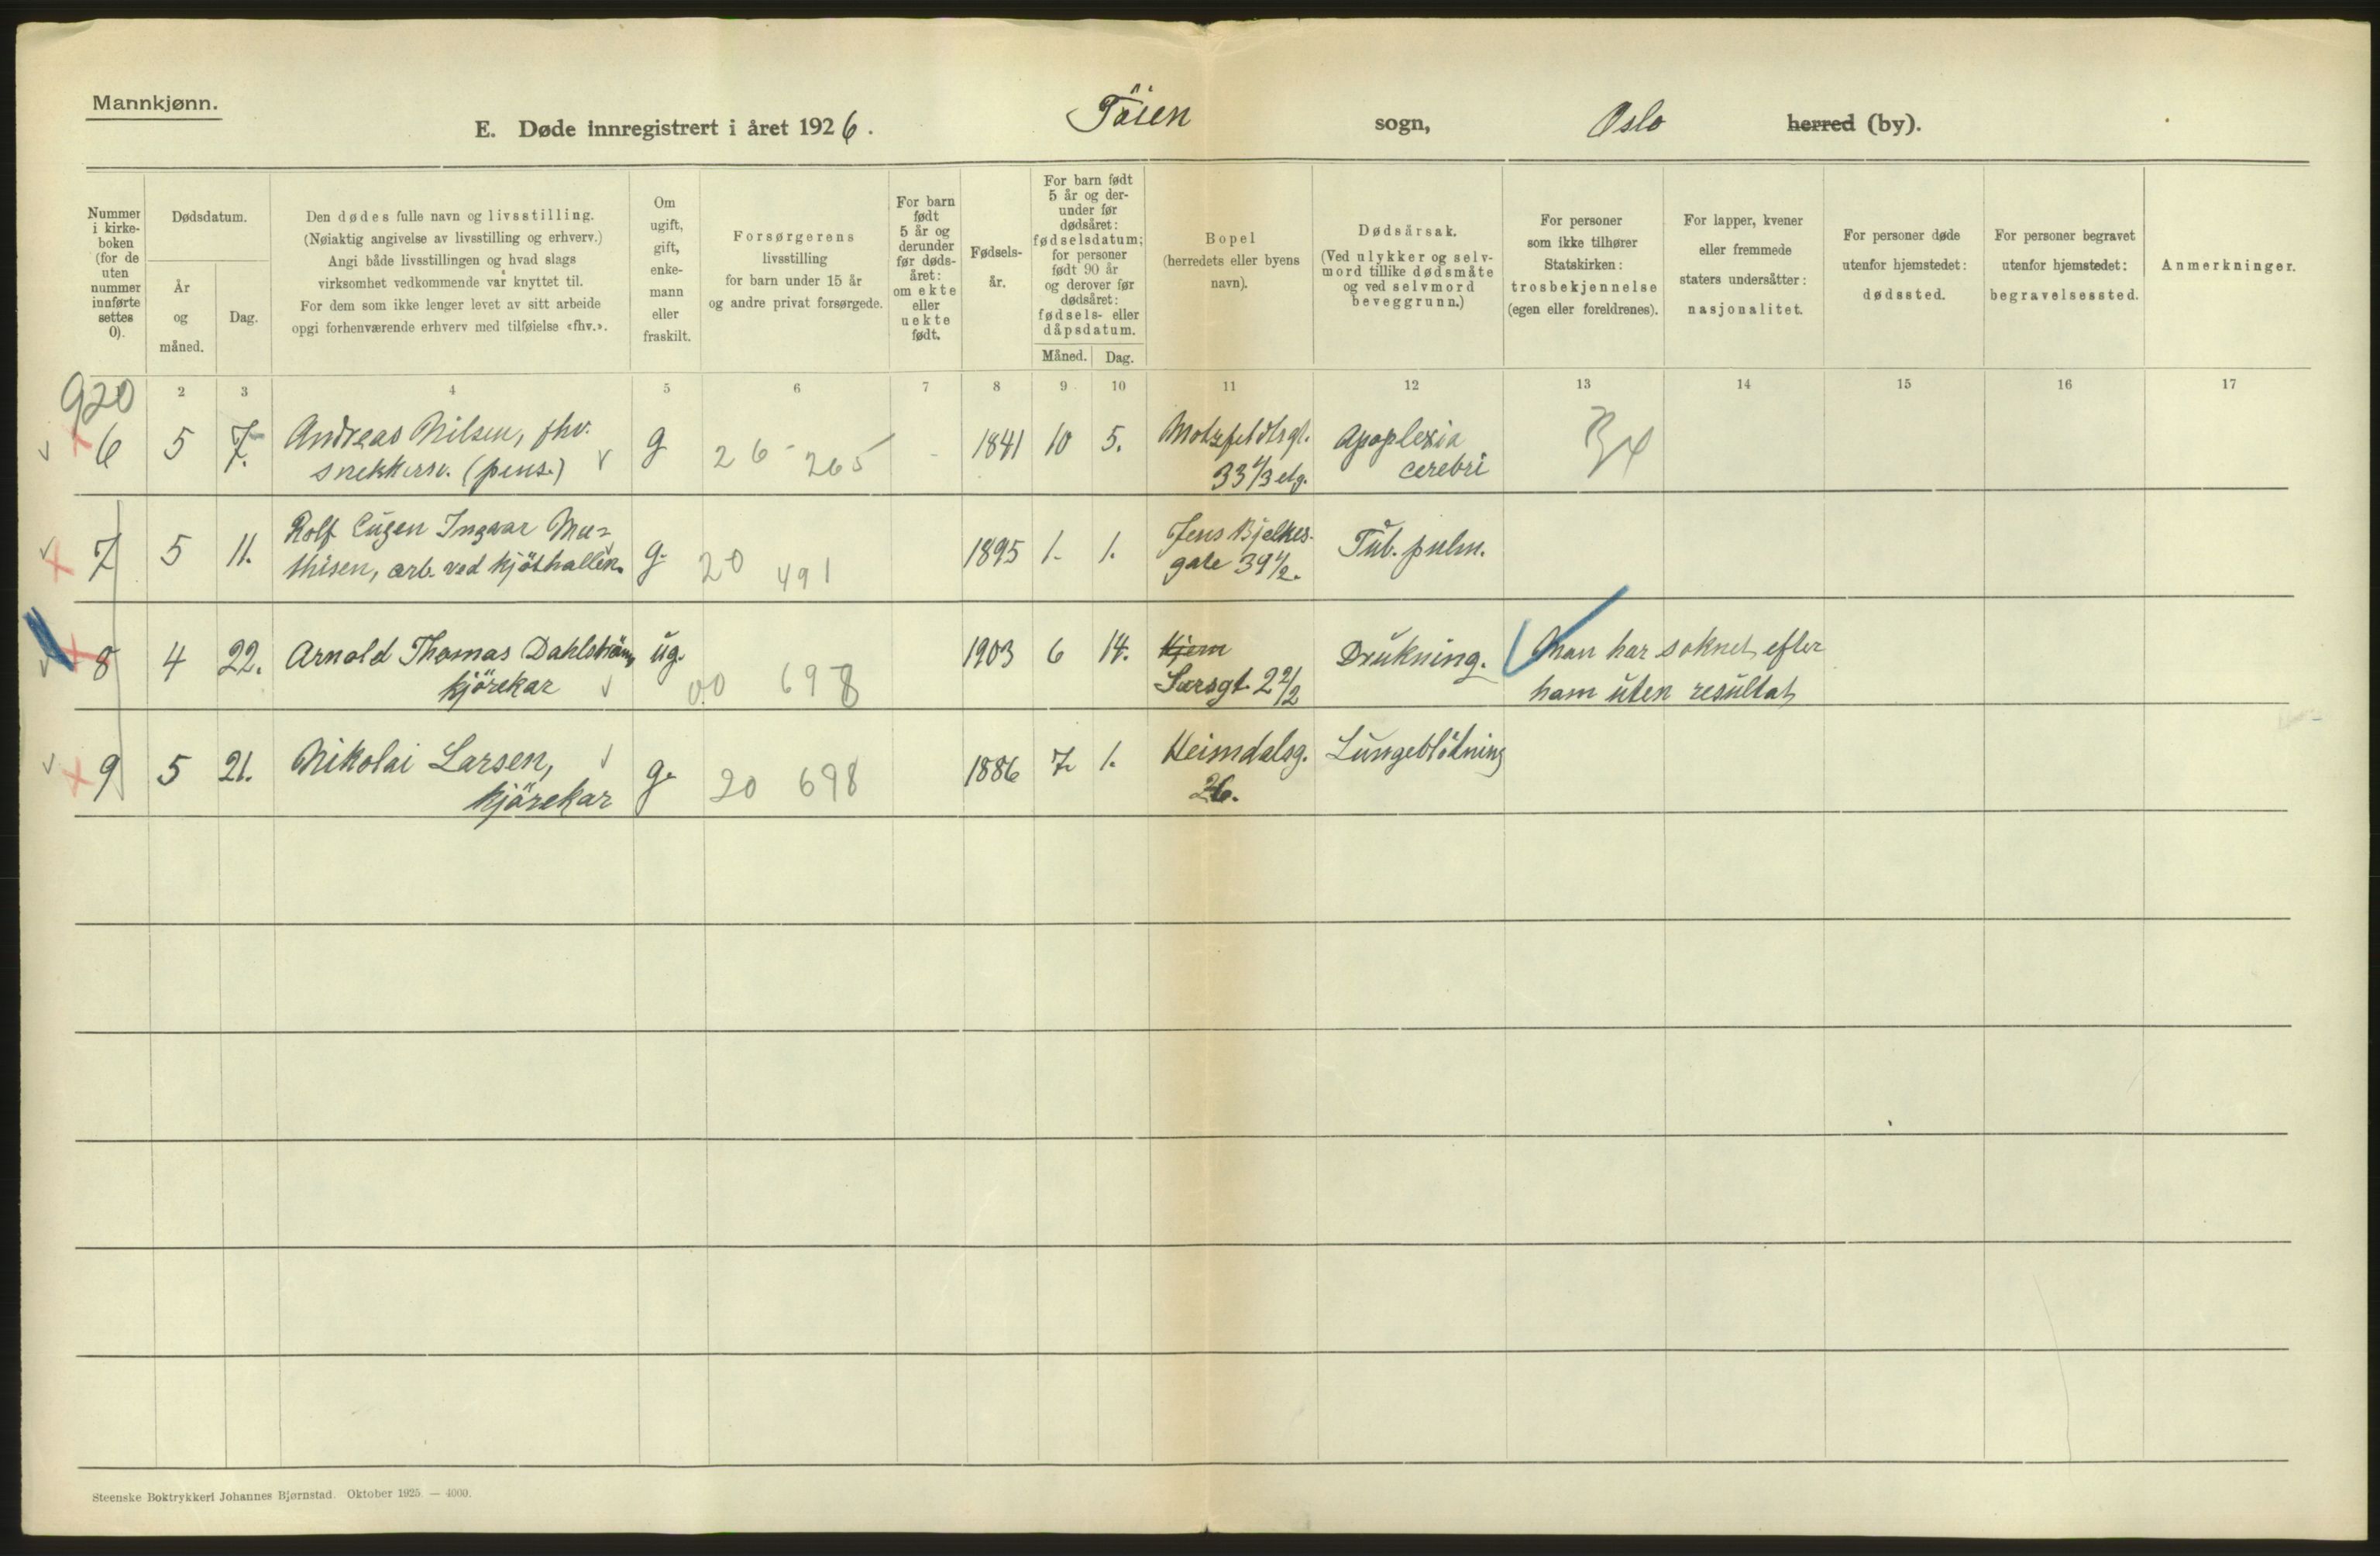 Mannkjønn.
E. Døde innregistrert i året 1926. Töien sogn, Oslo herred (by).
Nummer i kirke-boken (for de uten nummer innførte settes 0).
Dødsdatum.
År og måned.
Dag.
Den dødes fulle navn og livsstilling.
(Nøiaktig angivelse av livsstilling og erhverv.)
Angi både livsstillingen og hvad slags
virksomhet vedkommende var knyttet til.
For dem som ikke lenger levet av sitt arbeide
opgi forhenværende erhverv med tilføielse «fhv.».
Om ugift, gift, enke-mann eller fraskilt.
Forsørgerens
livsstilling
for barn under 15 år
og andre privat forsørgede.
For barn født 5 år og derunder før døds-året: om ekte eller uekte født.
Fødsels-år.
For barn født 5 år og der-under før dødsåret: fødselsdatum; for personer født 90 år og derover før dødsåret: fødsels- eller dåpsdatum.
Måned. Dag.
Bopel
(herredets eller byens
navn).
Dødsårsak.
(Ved ulykker og selv-
mord tillike dødsmåte
og ved selvmord
beveggrunn.)
For personer
som ikke tilhører
Statskirken:
trosbekjennelse
(egen eller foreldrenes).
For lapper, kvener
eller fremmede
staters undersåtter:
nasjonalitet.
For personer døde
utenfor hjemstedet:
dødssted.
For personer begravet
utenfor hjemstedet:
begravelsessted.
Anmerkninger.
920 2 3 4 5 6 7 8 9 10 11 12 13 14 15 16 17
6 5 7. Andreas Nilsen, fhv. g 26 - 265 - 1841 10 5. Motzfeldtsgt. Apoplexia
snekkersv. (pens.) 33 4/3 etg. cerebri
7 5 11. Rolf Eugen Ingvar Ma= g. 20 491 1895 1. 1. Jens Bjelkes- Tub. pulm.
thisen, arb. ved kjöthallen. gate 39 4/2.
8 4 22. Arnold Thomas Dahlström, ug. 00 698 1903 6 14. Hjem Drukning. Man har soknet efter
kjörekar Sarsgt. 2 2/2 ham uten resultat
9 5 21. Nikolai Larsen, g. 20 698 1886 7. 1. Heimdalsg. Lungeblödning
kjörekar 26.
Steenske Boktrykkeri Johannes Bjørnstad. Oktober 1925. — 4000.